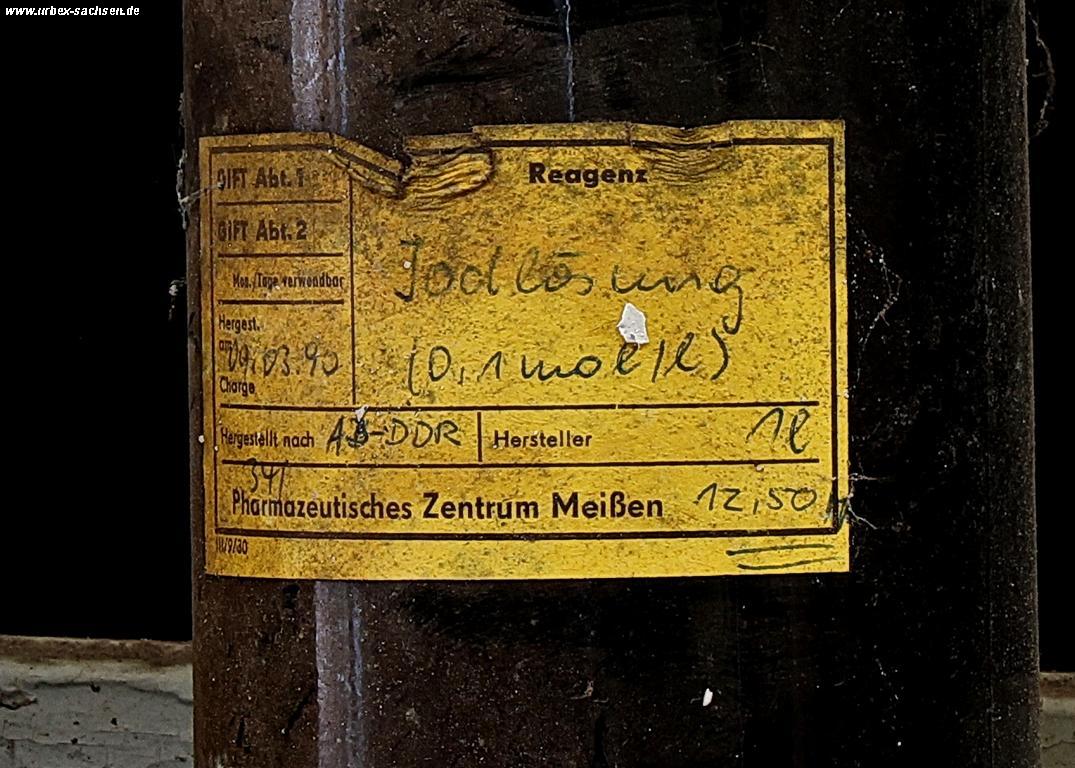 www.urbex-sachsen.de
GIFT Abt. 1
Reagenz
GIFT Abt. 2
Mon./Tage verwendbar
Jodlösung
Hergest.
am 09.03.90
(0,1 mol/l)
Charge
Hergestellt nach AB-DDR
Hersteller
1l
341
Pharmazeutisches Zentrum Meißen
12,50 M